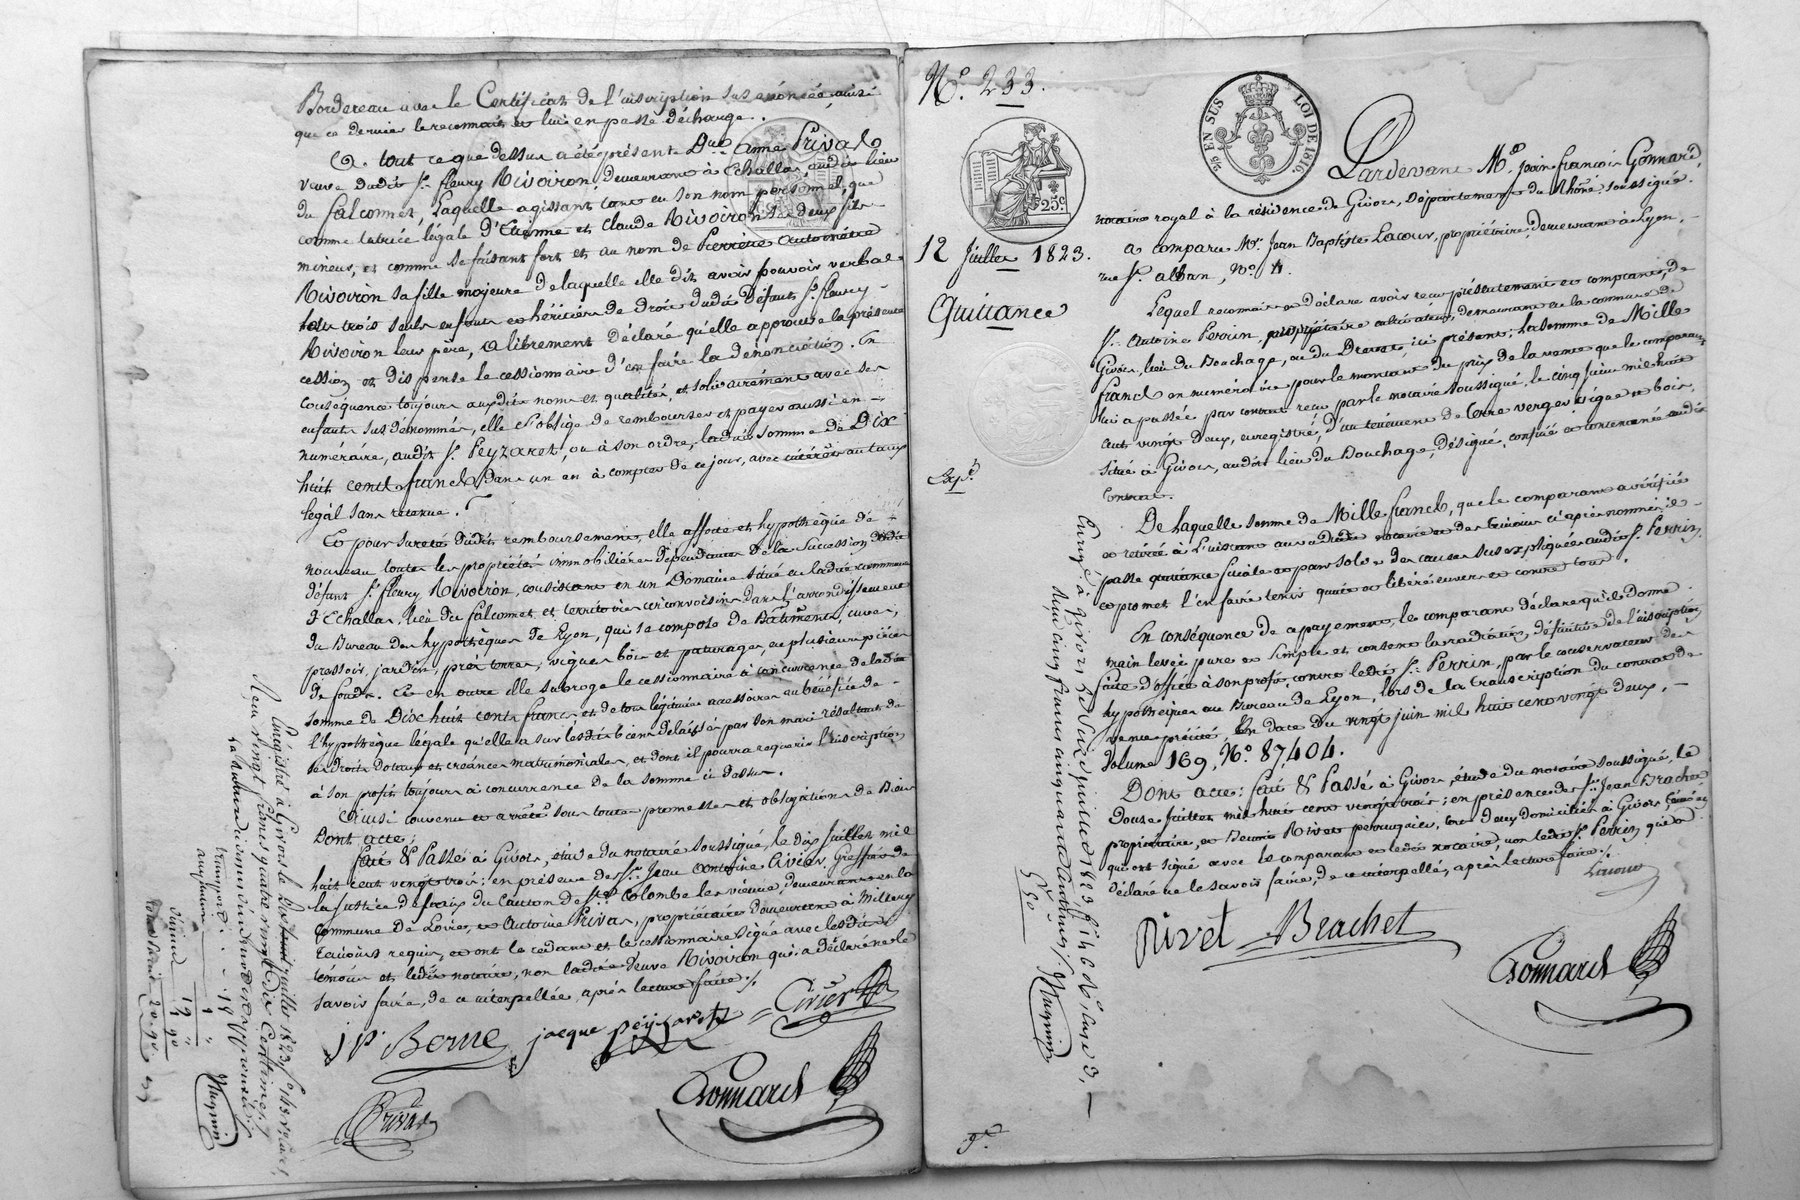 Bordereau avec le Certificat de l'inscription sus énoncée, ainsi
que ce dernier le reconnait et lui en passe décharge.
A tout ce que dessus a été présente Dme. anne Privat
veuve dudit Sr. fleury Rivoiron, demeurant à Echallas, audit lieu
du falconnet, Laquelle agissant tant en son nom personnel, que
comme tutrice légale d'Etienne et Claude Rivoiron ses deux fils
mineurs, et comme se faisant fort et au nom de Pierrette antoinette
Rivoiron sa fille majeure de laquelle elle dit avoir pouvoir verbal
tous trois seuls enfants et héritiers de droit dudit défunt Sr. fleury
Rivoiron leur père, a librement déclaré qu'elle approuve la présente
cession et dispense le cessionnaire d'en faire la dénonciation. En
conséquence toujours auxdits noms et qualités, et solidairement avec ses
enfants sus dénommés, elle s'oblige de rembourser et payer aussi en
numéraire, audit Sr. Peyzaret, ou à son ordre, ladite somme de Dix
huit cents francs, dans un an à compter de ce jour, avec intérêts au taux
légal sans retenue.
Et pour sureté dudit remboursement, elle affecte et hypothèque de
nouveau toutes les propriétés immobilières dépendantes de la Succession dudit
défunt Sr. fleury Rivoiron, consistant en un Domaine situé en ladite commune
d'Echallas, lieu du falconnet et territoires circonvoisins dans l'arrondissement
du Bureau des hypothèques de Lyon, qui se compose de Bâtiments, cuves,
pressoir, jardin, prés terres, vignes bois et paturages, en plusieurs pièces
de fonds. Et en outre elle subroge le cessionnaire à concurrence de ladite
somme de Dix huit cents francs, et de tous légitimes accessoires au bénéfice de
l'hypothèque légale qu'elle a sur lesdits biens délaissés par son mari résultant de
ses droits dotaux et créances matrimoniales, et dont il pourra requérir l'inscription
à son profit toujours à concurrence de la somme ci dessus.
Ainsi convenu et arrêté sous toutes promesses et obligations de Biens
Dont acte;
fait & Passé à Givors, étude du notaire soussigné, le dix Juillet mil
huit cent vingt trois; en présence des Srs. Jean antoine Civier, Greffier de
la Justice de paix du Canton de Ste Colombe les vienne, demeurant en la
Commune de Loire, et Antoine Privas, propriétaire demeurant à Millery
témoins requis, et ont le cédant et le cessionnaire signé avec lesdits
témoins et ledit notaire, non ladite veuve Rivoiron qui a déclaré ne le
savoir faire, de ce interpellée, après lecture faite./.
JP Berne jacque peyzaret Civier
Privas Gonnard
Enregistré à Givors le juillet 1823, fo
Reçu vingt francs quatre vingt dix Centimes
Mugnin
No. 233.
25 EN SUS LOI DE 1816
25c
12 Juillet 1823.
Quittance
Expd.
Pardevant Me. Jean François Gonnard,
notaire royal à la résidence de Givors, Département du Rhône, soussigné.
a comparu Mr. Jean Baptiste Lacour, propriétaire, demeurant à Lyon,
rue St. alban, No. 4.
Lequel reconnait et déclare avoir reçu présentement et comptant, de
Sr. Antoine Perrin, propriétaire cultivateur, demeurant en la commune de
Givors, lieu du Bouchage, ou du Drevet, ici présent; la somme de Mille
francs en numéraire pour le montant du prix de la vente que le comparant
lui a passée par contrat reçu par le notaire soussigné, le cinq juin mil huit
cent vingt deux, enregistré, d'un tènement de terre verger vigne et bois,
situé à Givors, audit lieu du Bouchage, désigné, confiné et contenancé audit
Contrat.
De laquelle somme de Mille francs, que le comparant a vérifiée
et retirée à l'instant au vu dudit notaire et des témoins ci après nommés, il
passe quittance finale et pour solde des causes sus expliquées audit Sr. Perrin,
et promet l'en faire tenir quitte et libéré envers et contre tous.
En conséquence de ce payement, le comparant déclare qu'il donne
main levée pure et simple et consent la radiation définitive de l'inscription
faite d'office à son profit, contre ledit Sr. Perrin, par le conservateur des
hypothèques au Bureau de Lyon, lors de la transcription du contrat de
vente précité, En date du vingt juin mil huit cent vingt deux,
volume 169, No. 87,404.
Dont acte: fait & Passé à Givors, étude du notaire soussigné, le
Douze Juillet mil huit cent vingt trois; en présence des Srs. Jean Brachet
propriétaire, et Rivet perruquier, tous deux domiciliés à Givors, témoins
qui ont signé avec le comparant et ledit notaire, non ledit Sr. Perrin qui a
déclaré ne le savoir faire, de ce interpellé, après lecture faite./.
Lacour
Rivet Brachet
Gonnard
Enregé à Givors le juillet 1823, fo
Reçu cinq francs cinquante Centimes./. Mugnin
5. 50